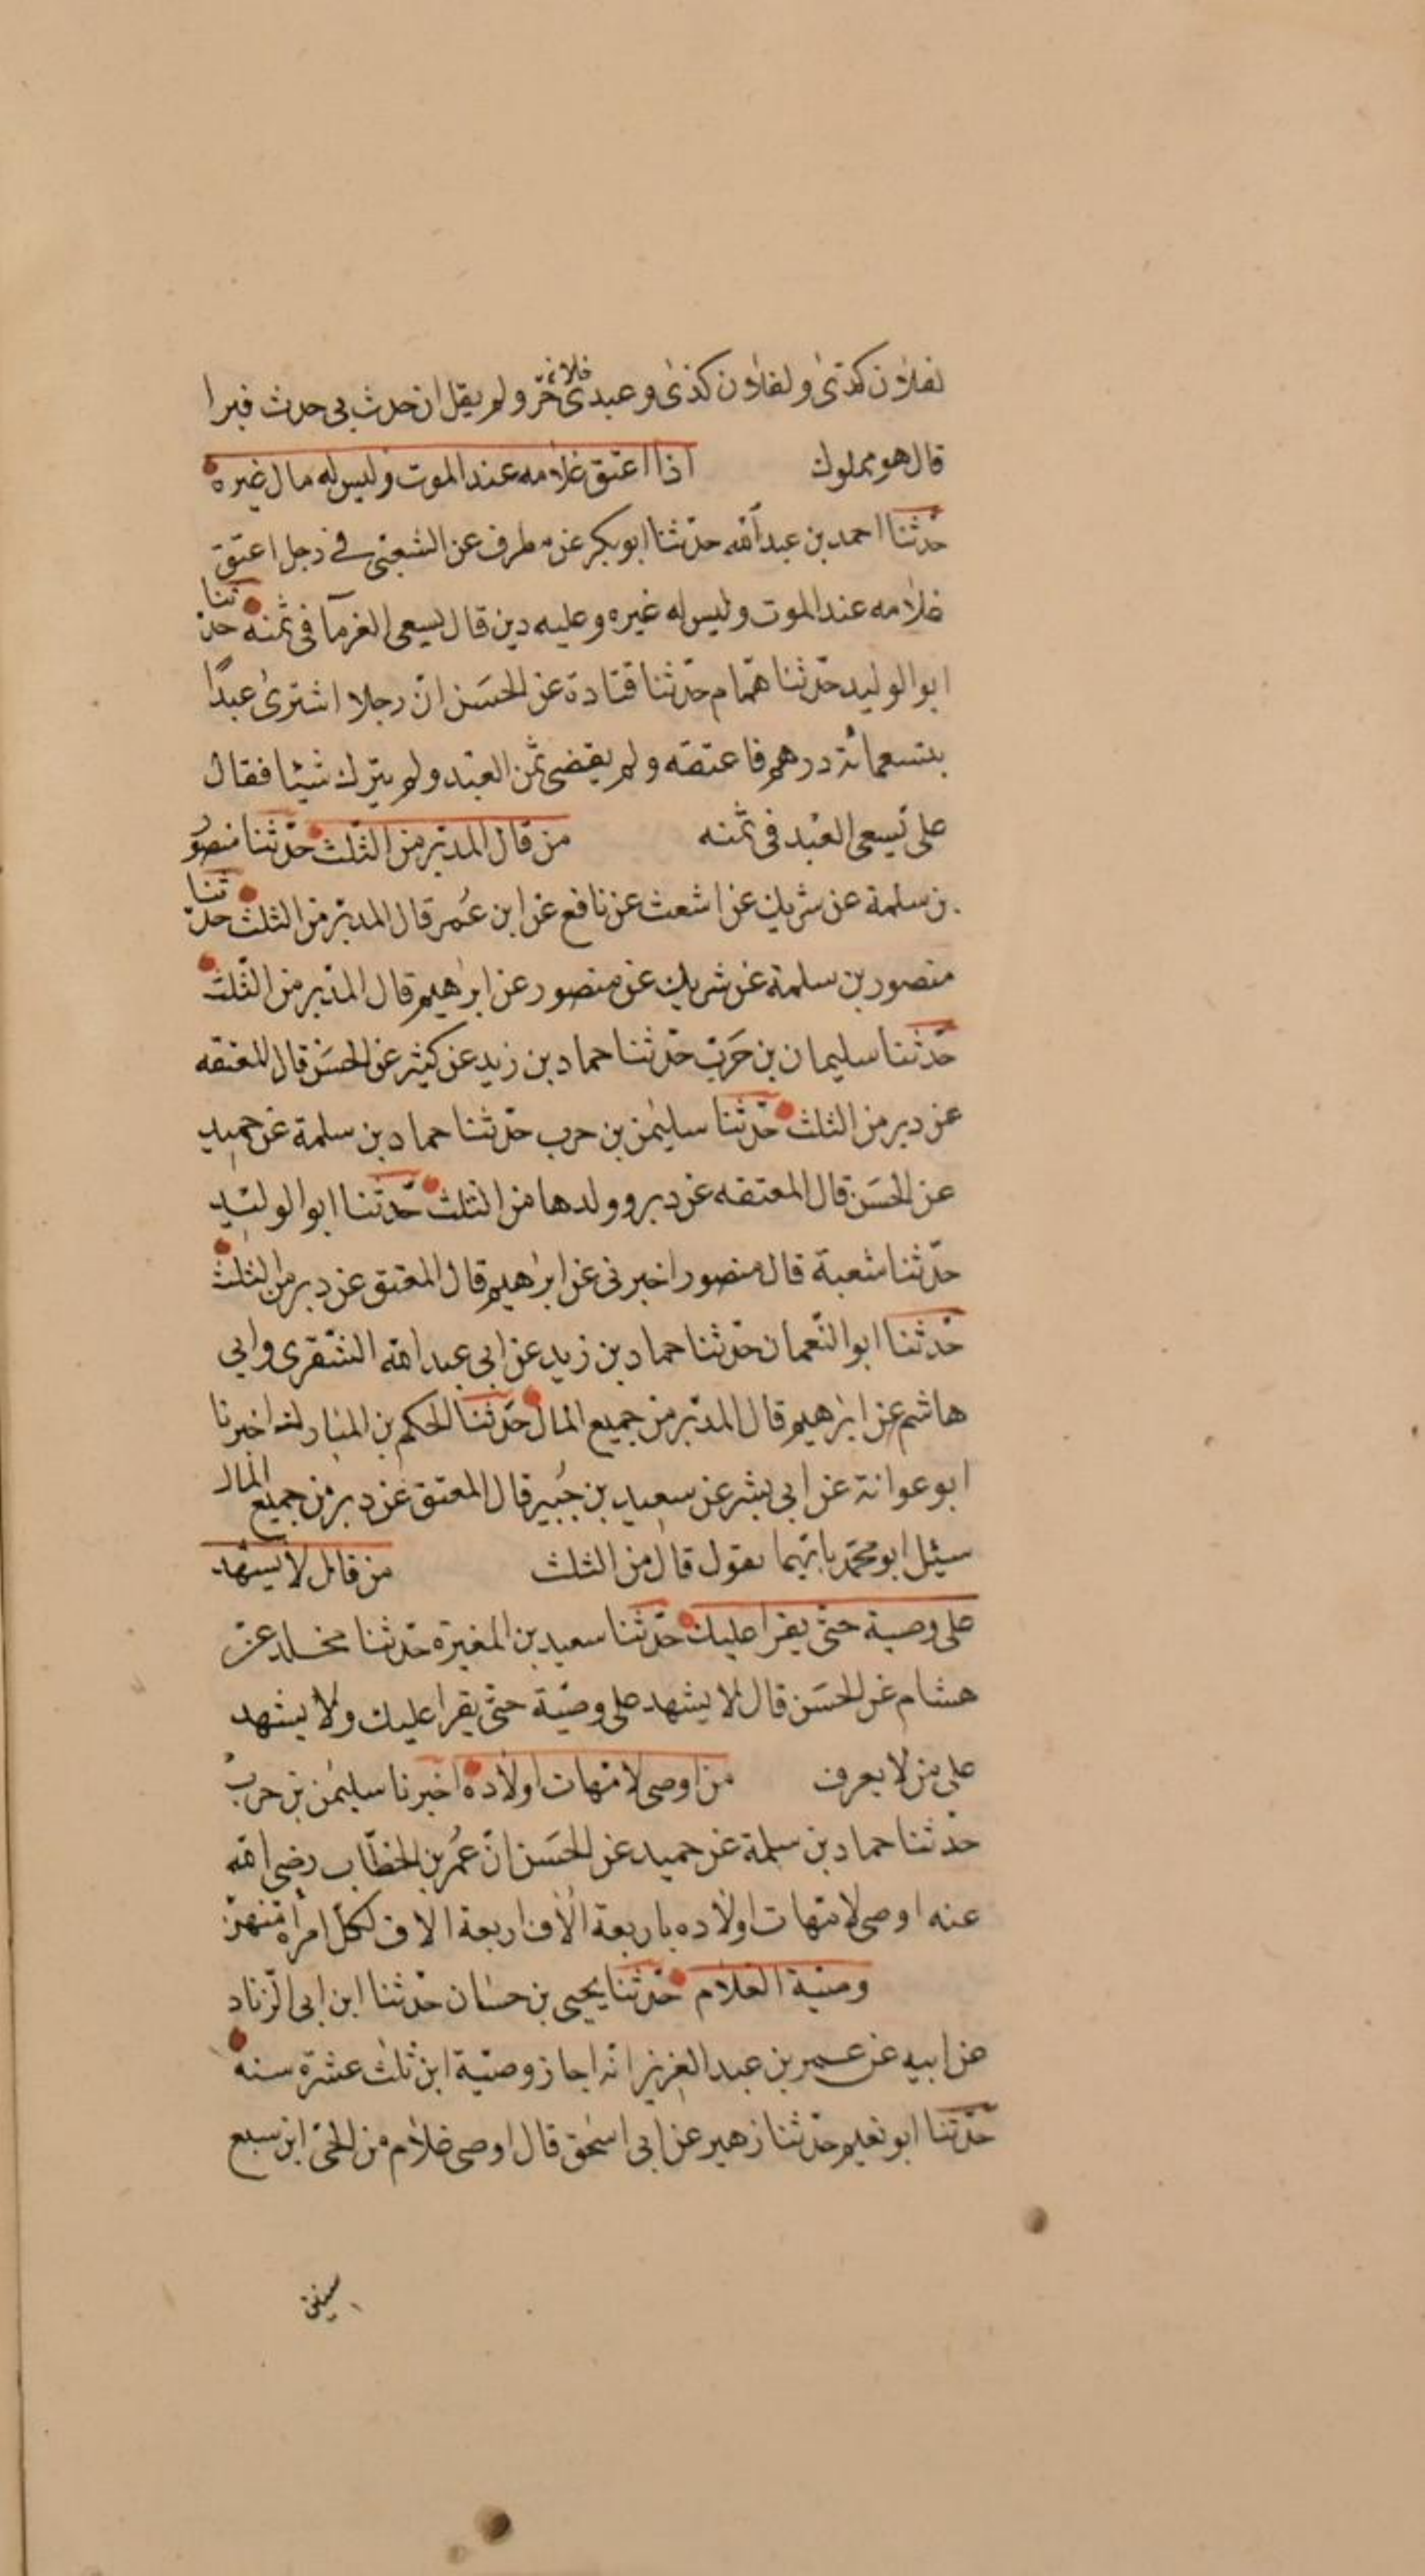 لفلان كذى ولفلان كذى وعبدى فلان حرّ ولم يقل ان حدث بى حدث فبرا
قال هو مملوك اذا اعتق غلامه عند الموت وليس له مال غيره
حدّثنا احمد بن عبد الله حدّثنا ابو بكر عن مطرف عن الشعبى فى رجل اعتق
غلامه عند الموت وليس له غيره وعليه دين قال يسعى للغرمآ فى ثمنه حدّثنا
ابو الوليد حدّثنا همّام حدّثنا قتادة عن الحسَن انّ رجلا اشترى عبدًا
بتسعمائة درهم فاعتقه ولم يقضى ثمن العبد ولم يترك شيئا فقال
على يسعى العبْد فى ثمنه من قال المدبّر من الثّلث حدّثنا منصُو
بن سلمة عن شريك عن اشعث عن نافع عن ابن عُمر قال المدبّر من الثلث حدّثنا
منصور بن سلمة عن شريك عن منصور عن ابرٰهيم قال المدّبر من الثّلث
حدّثنا سليمان بن حَربْ حدّثنا حماد بن زيد عن كثير عن الحسَن قال المعتقه
عن دبر من الثلث حدّثنا سليمٰن بن حرب حدّثنا حماد بن سلمة عن حميد
عن الحسَن قال المعتقه عن دبر وولدها من الثلث حدّثنا ابو الوليْد
حدّثنا شعبة قال منصور اخبرنى عن ابرٰهيم قال المعتق عن دبر من الثلث
حدّثنا ابو النّعمان حدّثنا حماد بن زيد عن ابى عبد الله الشّقرى وابى
هاشم عن ابرٰهيم قال المدبّر من جميع المال حدّثنا الحكم بن المبارك اخبرنا
ابو عوانة عن ابى بشر عن سعيد بن جُبير قال المعتق عن دبر من جميع المال
سئيل ابو محمّد بايّهما تقول قال من الثلث من قال لا يشهد
على وصية حتّى يقرا عليك حدّثنا سعيد بن المغيرة حدّثنا مخلد عن
هشام عن الحسَن قال لا يشهد على وصيّة حتّى يقرا عليك ولا يشهد
على من لا يعرف من اوصى لامّهات اولاده اخبرنا سليمٰن بن حربْ
حدّثنا حماد بن سلمة عن حميد عن الحسَن انّ عُمر بن الخطّاب رضى الله
عنه اوصى لامّهات اولاده باربعة الاٰف اربعة الاف لكلّ امراة منهنّ
وصيّة الغلام حدّثنا يحيى بن حسّان حدّثنا ابن ابى الزّناد
عن ابيه عن عمر بن عبد العزيز انّه اجاز وصيّة ابن ثلٰث عشرة سنه
حدّثنا ابو نعيم حدّثنا زهير عن ابى اسحٰق قال اوصى غلام من الحىّ ابن سبع
سنين